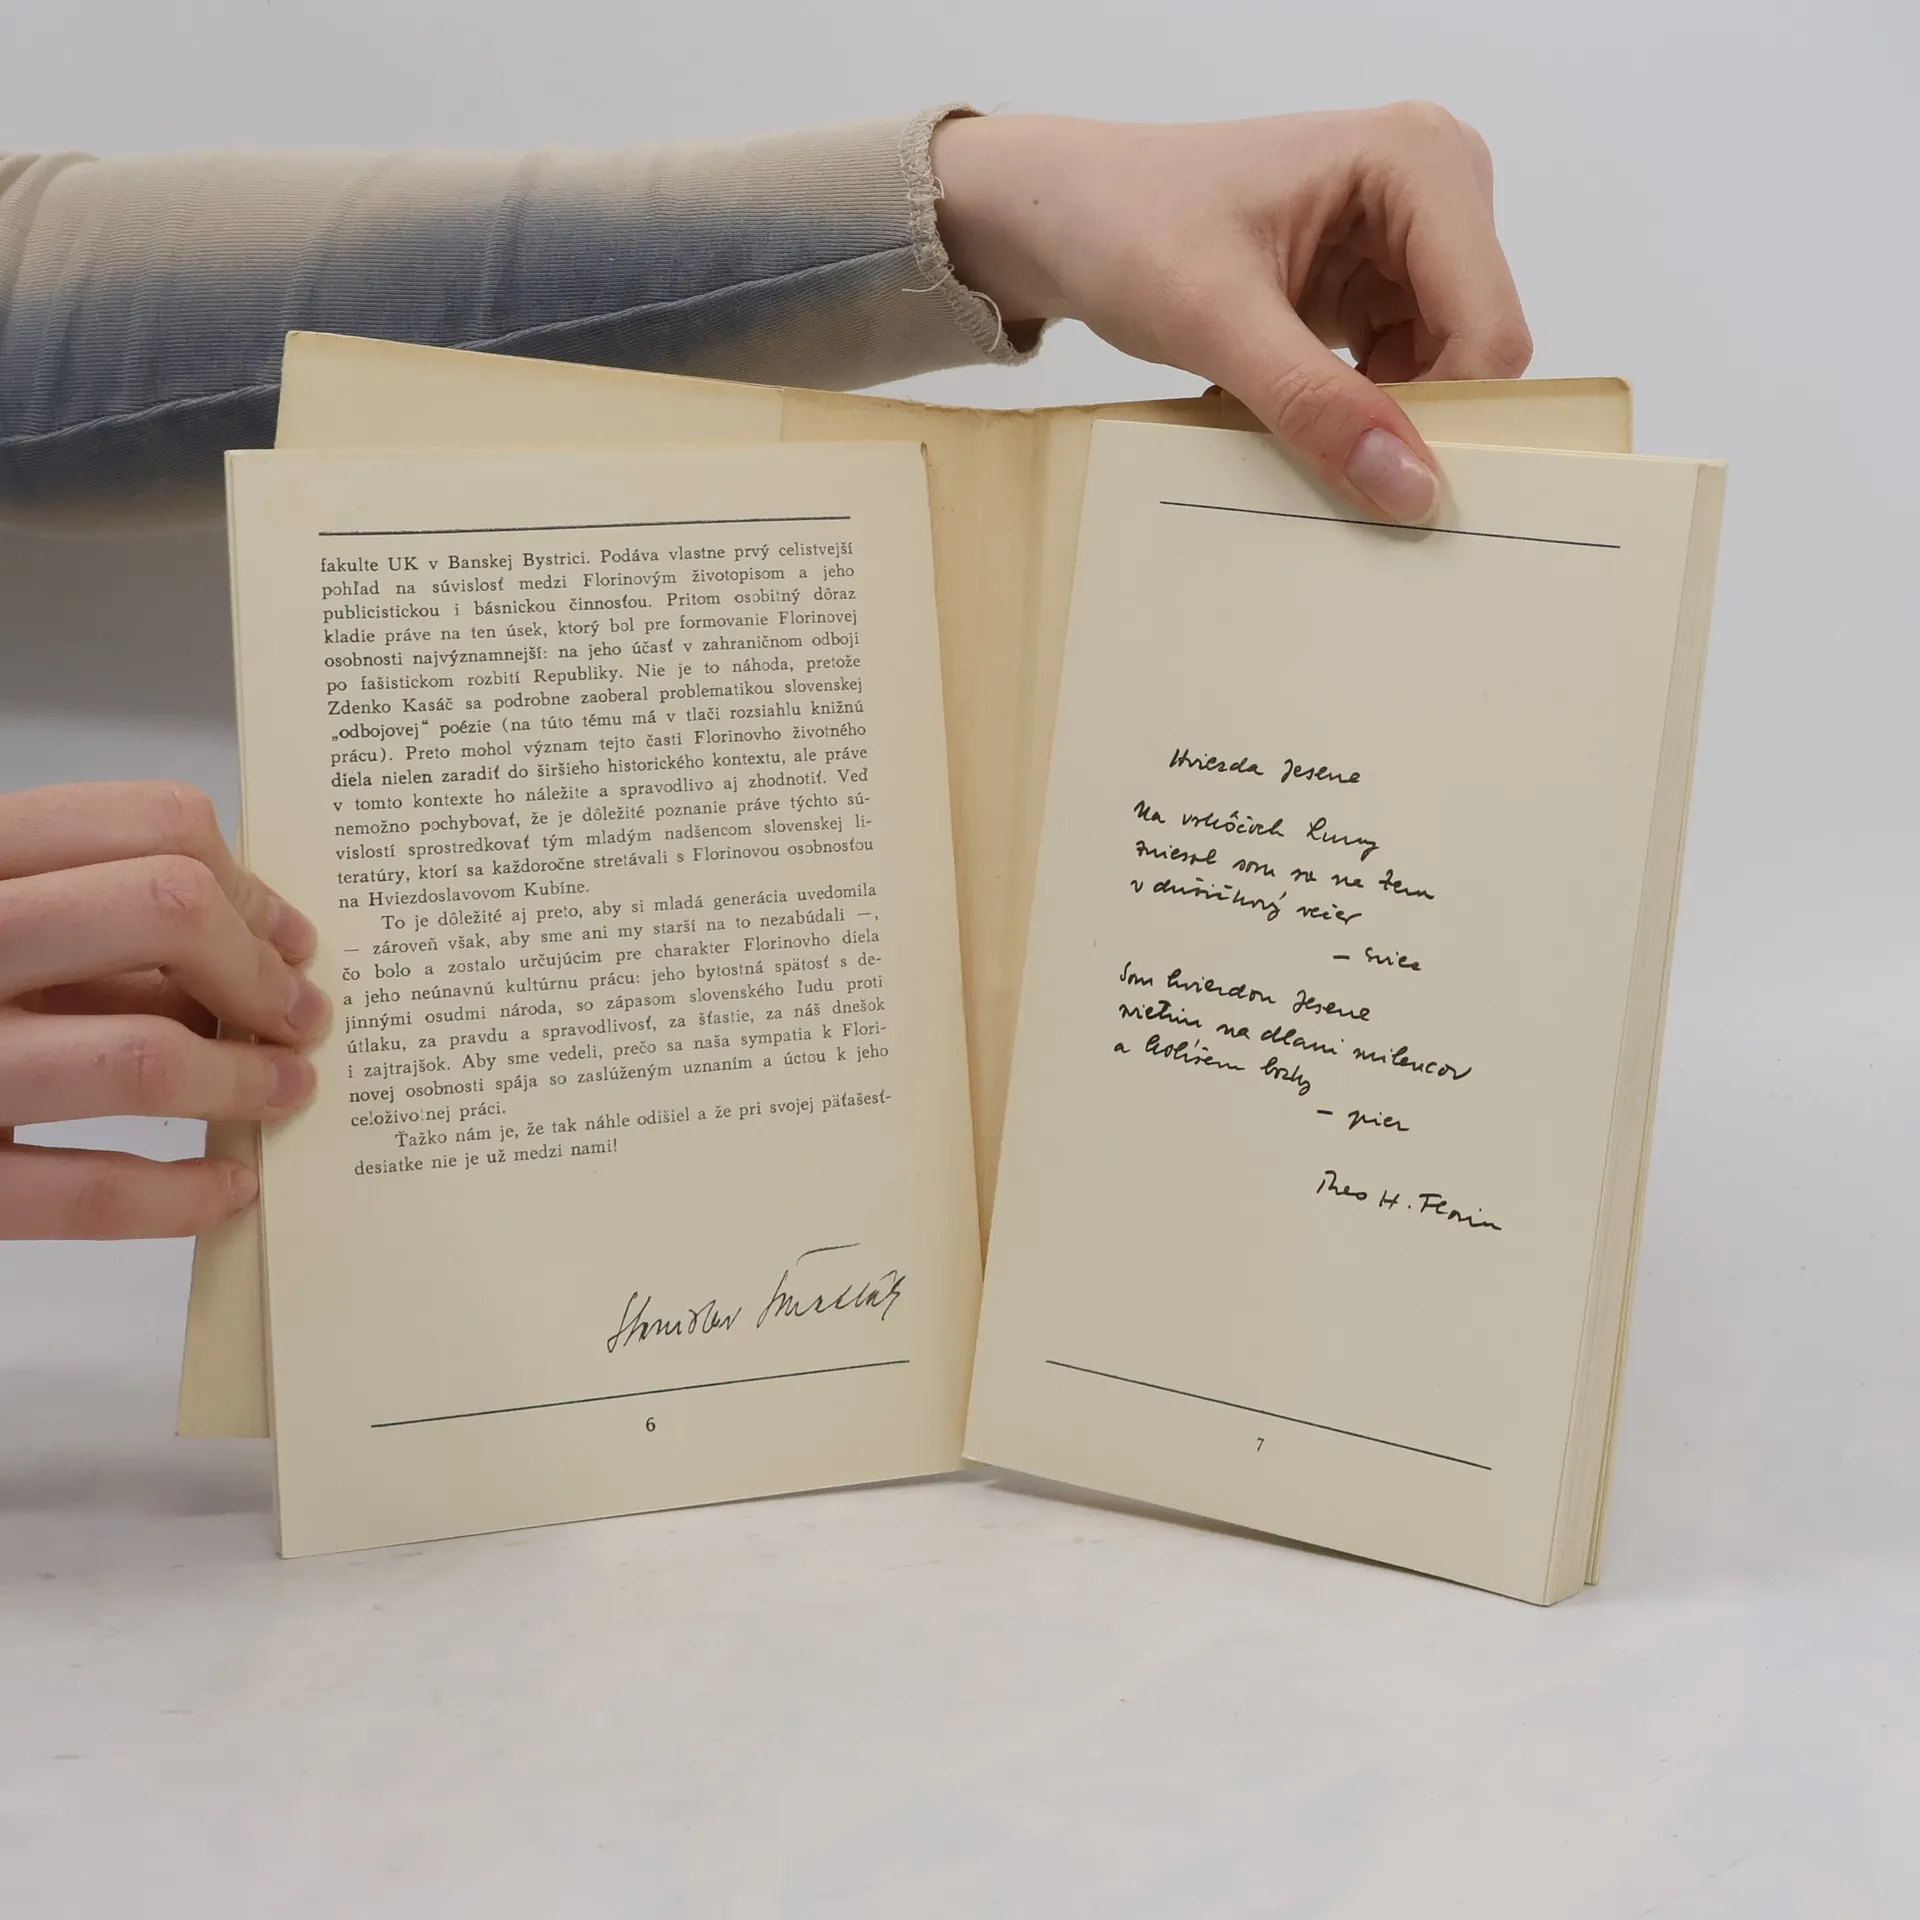 fakulte UK v Banskej Bystrici. Podáva vlastne prvý celistvejší
pohľad na súvislosť medzi Florinovým životopisom a jeho
publicistickou i básnickou činnosťou. Pritom osobitný dôraz
kladie práve na ten úsek, ktorý bol pre formovanie Florinovej
osobnosti najvýznamnejší: na jeho účasť v zahraničnom odboji
po fašistickom rozbití Republiky. Nie je to náhoda, pretože
Zdenko Kasáč sa podrobne zaoberal problematikou slovenskej
„odbojovej“ poézie (na túto tému má v tlači rozsiahlu knižnú
prácu). Preto mohol význam tejto časti Florinovho životného
diela nielen zaradiť do širšieho historického kontextu, ale práve
v tomto kontexte ho náležite a spravodlivo aj zhodnotiť. Veď
nemožno pochybovať, že je dôležité poznanie práve týchto sú-
vislostí sprostredkovať tým mladým nadšencom slovenskej li-
teratúry, ktorí sa každoročne stretávali s Florinovou osobnosťou
na Hviezdoslavovom Kubíne.
To je dôležité aj preto, aby si mladá generácia uvedomila
— zároveň však, aby sme ani my starší na to nezabúdali —,
čo bolo a zostalo určujúcim pre charakter Florinovho diela
a jeho neúnavnú kultúrnu prácu: jeho bytostná spätosť s de-
jinnými osudmi národa, so zápasom slovenského ľudu proti
útlaku, za pravdu a spravodlivosť, za šťastie, za náš dnešok
i zajtrajšok. Aby sme vedeli, prečo sa naša sympatia k Flori-
novej osobnosti spája so zaslúženým uznaním a úctou k jeho
celoživotnej práci.
Ťažko nám je, že tak náhle odišiel a že pri svojej päťašesť-
desiatke nie je už medzi nami!
Stanislav Šmatlák
6
Hviezda Jesene
Na vrkôčoch Luny
zniesol som sa na zem
v dušičkový večer
– svieca
Som hviezdou Jesene
svietim na dlani milencov
a kolíšem bozky
– pier
Theo H. Florin
7